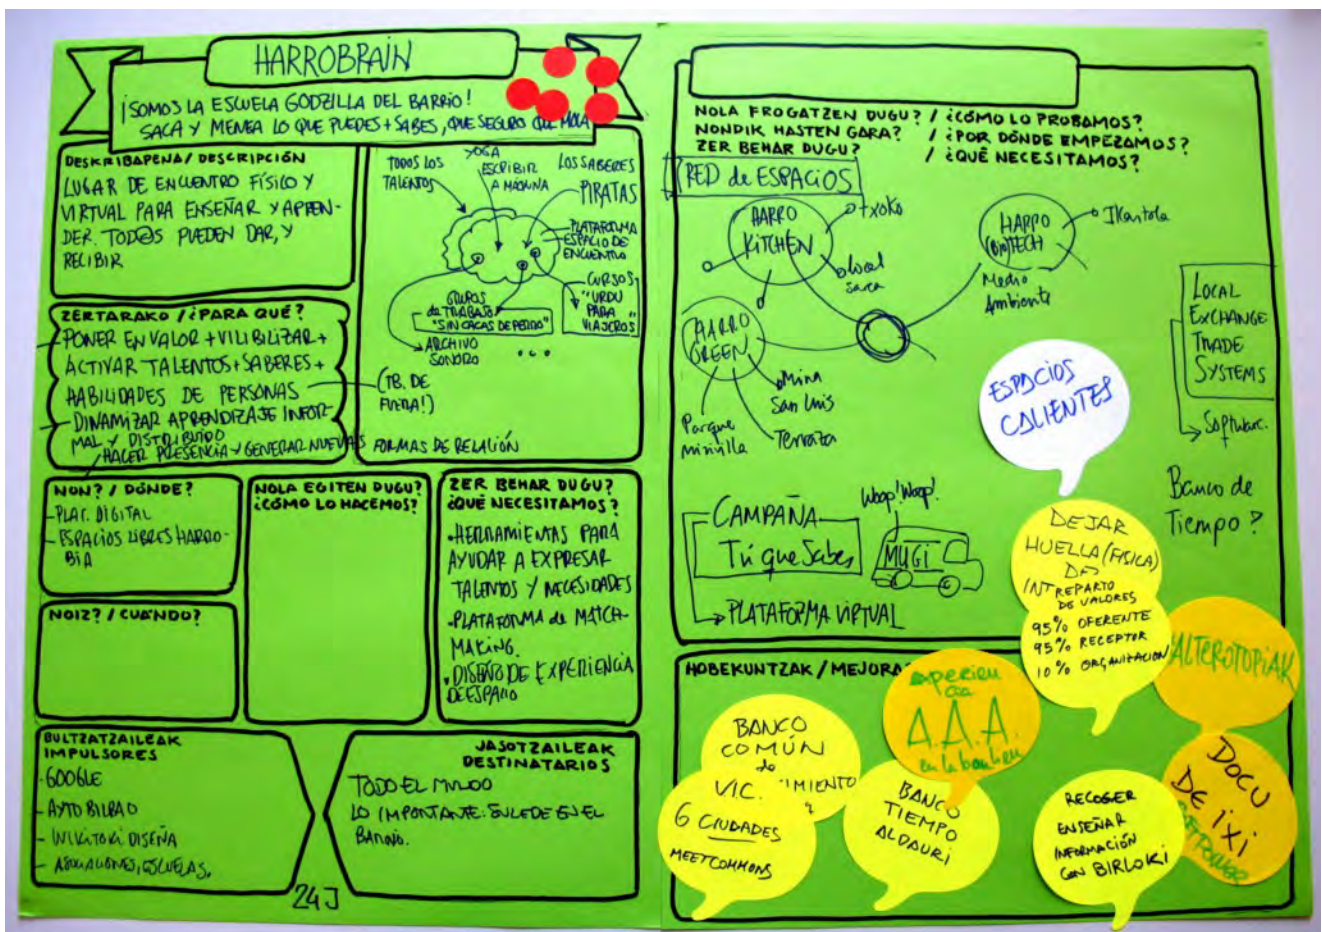 HARROBRAIN
¡SOMOS LA ESCUELA GODZILLA DEL BARRIO!
SACA Y MENEA LO QUE PUEDES + SABES, QUE SEGURO QUE MOLA
DESKRIBAPENA / DESCRIPCIÓN
LUGAR DE ENCUENTRO FÍSICO Y
VIRTUAL PARA ENSEÑAR Y APREN-
DER. TOD@S PUEDEN DAR, Y
RECIBIR
TODOS LOS
TALENTOS
YOGA
ESCRIBIR
A MÁQUINA
LOS SABERES
PIRATAS
PLATAFORMA
ESPACIO DE
ENCUENTRO
CURSOS
"URDU
PARA
VIAJEROS"
GRUPOS
de TRABAJO
"SIN CACAS DE PERRO"
ARCHIVO
SONORO
...
ZERTARAKO / ¿PARA QUÉ?
PONER EN VALOR + VILIBILIZAR +
ACTIVAR TALENTOS + SABERES +
HABILIDADES DE PERSONAS
(TB. DE
FUERA!)
- DINAMIZAR APRENDIZAJE INFOR-
MAL Y DISTRIBUIDO
HACER PRESENCIA Y GENERAR NUEVAS FORMAS DE RELACIÓN
NON? / DÓNDE?
- PLAT. DIGITAL
- ESPACIOS LIBRES HARRO-
BIA
NOIZ? / CUÁNDO?
NOLA EGITEN DUGU?
¿CÓMO LO HACEMOS?
ZER BEHAR DUGU?
¿QUÉ NECESITAMOS?
• HERRAMIENTAS PARA
AYUDAR A EXPRESAR
TALENTOS Y NECESIDADES
• PLATAFORMA de MATCH-
MAKING.
• DISEÑO DE EXPERIENCIA
DE ESPACIO
BULTZATZAILEAK
IMPULSORES
- GOOGLE
- AYTO BILBAO
- WIKITOKI DISEÑA
- ASOCIACIONES, ESCUELAS,
JASOTZAILEAK
DESTINATARIOS
TODO EL MUNDO
LO IMPORTANTE: SUCEDE EN EL
BARRIO.
24J
NOLA FROGATZEN DUGU? / ¿CÓMO LO PROBAMOS?
NONDIK HASTEN GARA? / ¿POR DÓNDE EMPEZAMOS?
ZER BEHAR DUGU? / ¿QUÉ NECESITAMOS?
RED de ESPACIOS
HARRO
KITCHEN
txoko
local
sarea
HARRO
(BIO)TECH
Ikantola
Medio
Ambiente
HARRO
GREEN
Mina
San Luis
Terraza
Parque
miravilla
LOCAL
EXCHANGE
TRADE
SYSTEMS
Software.
Banco de
Tiempo?
ESPACIOS
CALIENTES
CAMPAÑA
Tú que Sabes
PLATAFORMA VIRTUAL
Woop! Woop!
MUGI
DEJAR
HUELLA (FISICA)
REPARTO
DE VALORES
95% OFERENTE
95% RECEPTOR
10% ORGANIZACION
ALTEROTOPIAK
HOBEKUNTZAK / MEJORA
experien
cia
A.A.A.
en la banlieu
BANCO
COMÚN
de
IMIENTO
V.I.C.
6 CIUDADES
MEETCOMMONS
BANCO
TIEMPO
ALDAURI
RECOGER
ENSEÑAR
INFORMACIÓN
CON BIRLOKI
DOCU
DE iti